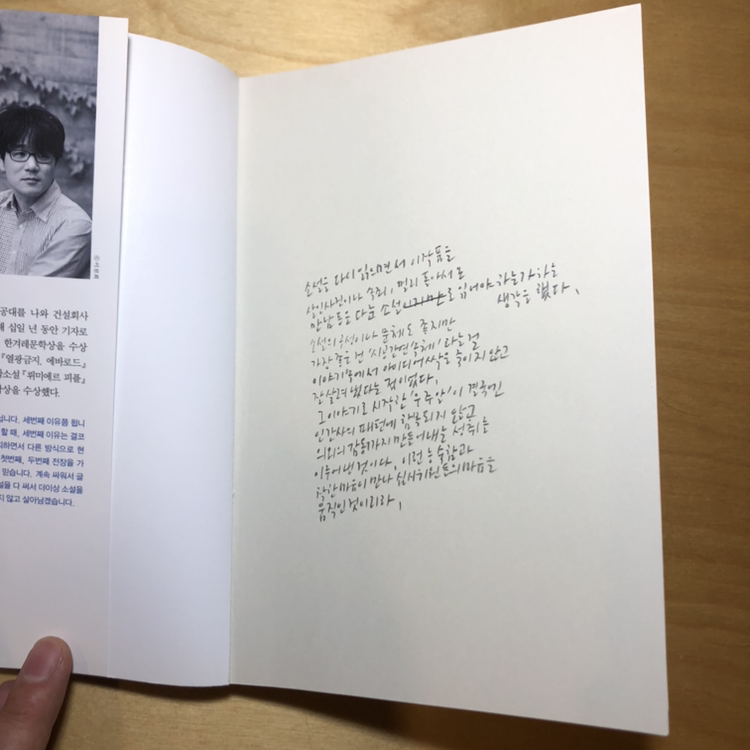 ⓒ이천희
공대를 나와 건설회사
해 십일 년 동안 기자로
한겨레문학상을 수상
『열광금지, 에바로드』
소설 『뤼미에르 피플』
상을 수상했다.
입니다. 세번째 이유쯤 됩니
할 때, 세번째 이유는 결코
하면서 다른 방식으로 현
첫번째, 두번째 전장을 가
믿습니다. 계속 싸워서 글
설을 다 써서 더이상 소설을
지 않고 살아남겠습니다.
소설을 다시 읽으면서 이 작품을
살인사건이나 속죄, 멀리 돌아서 로
만남 등을 다룬 소설로 읽어야 하는가 하는
생각을 했다.
소설의 구성이나 문체도 좋지만
가장 좋은 건 '시공간연속체'라는 걸
이야기 속에서 아이디어 싹을 죽이지 않고
잘 살려냈다는 점이었다.
그 이야기로 시작한 '우주 알'이 결국엔
인간사의 패턴에 함몰되지 않고
의외의 감동까지 만들어내는 성취를
이루어낸 것이다. 이런 능숙함과
착한 마음이 만나 심사위원들의 마음을
움직인 것이리라.